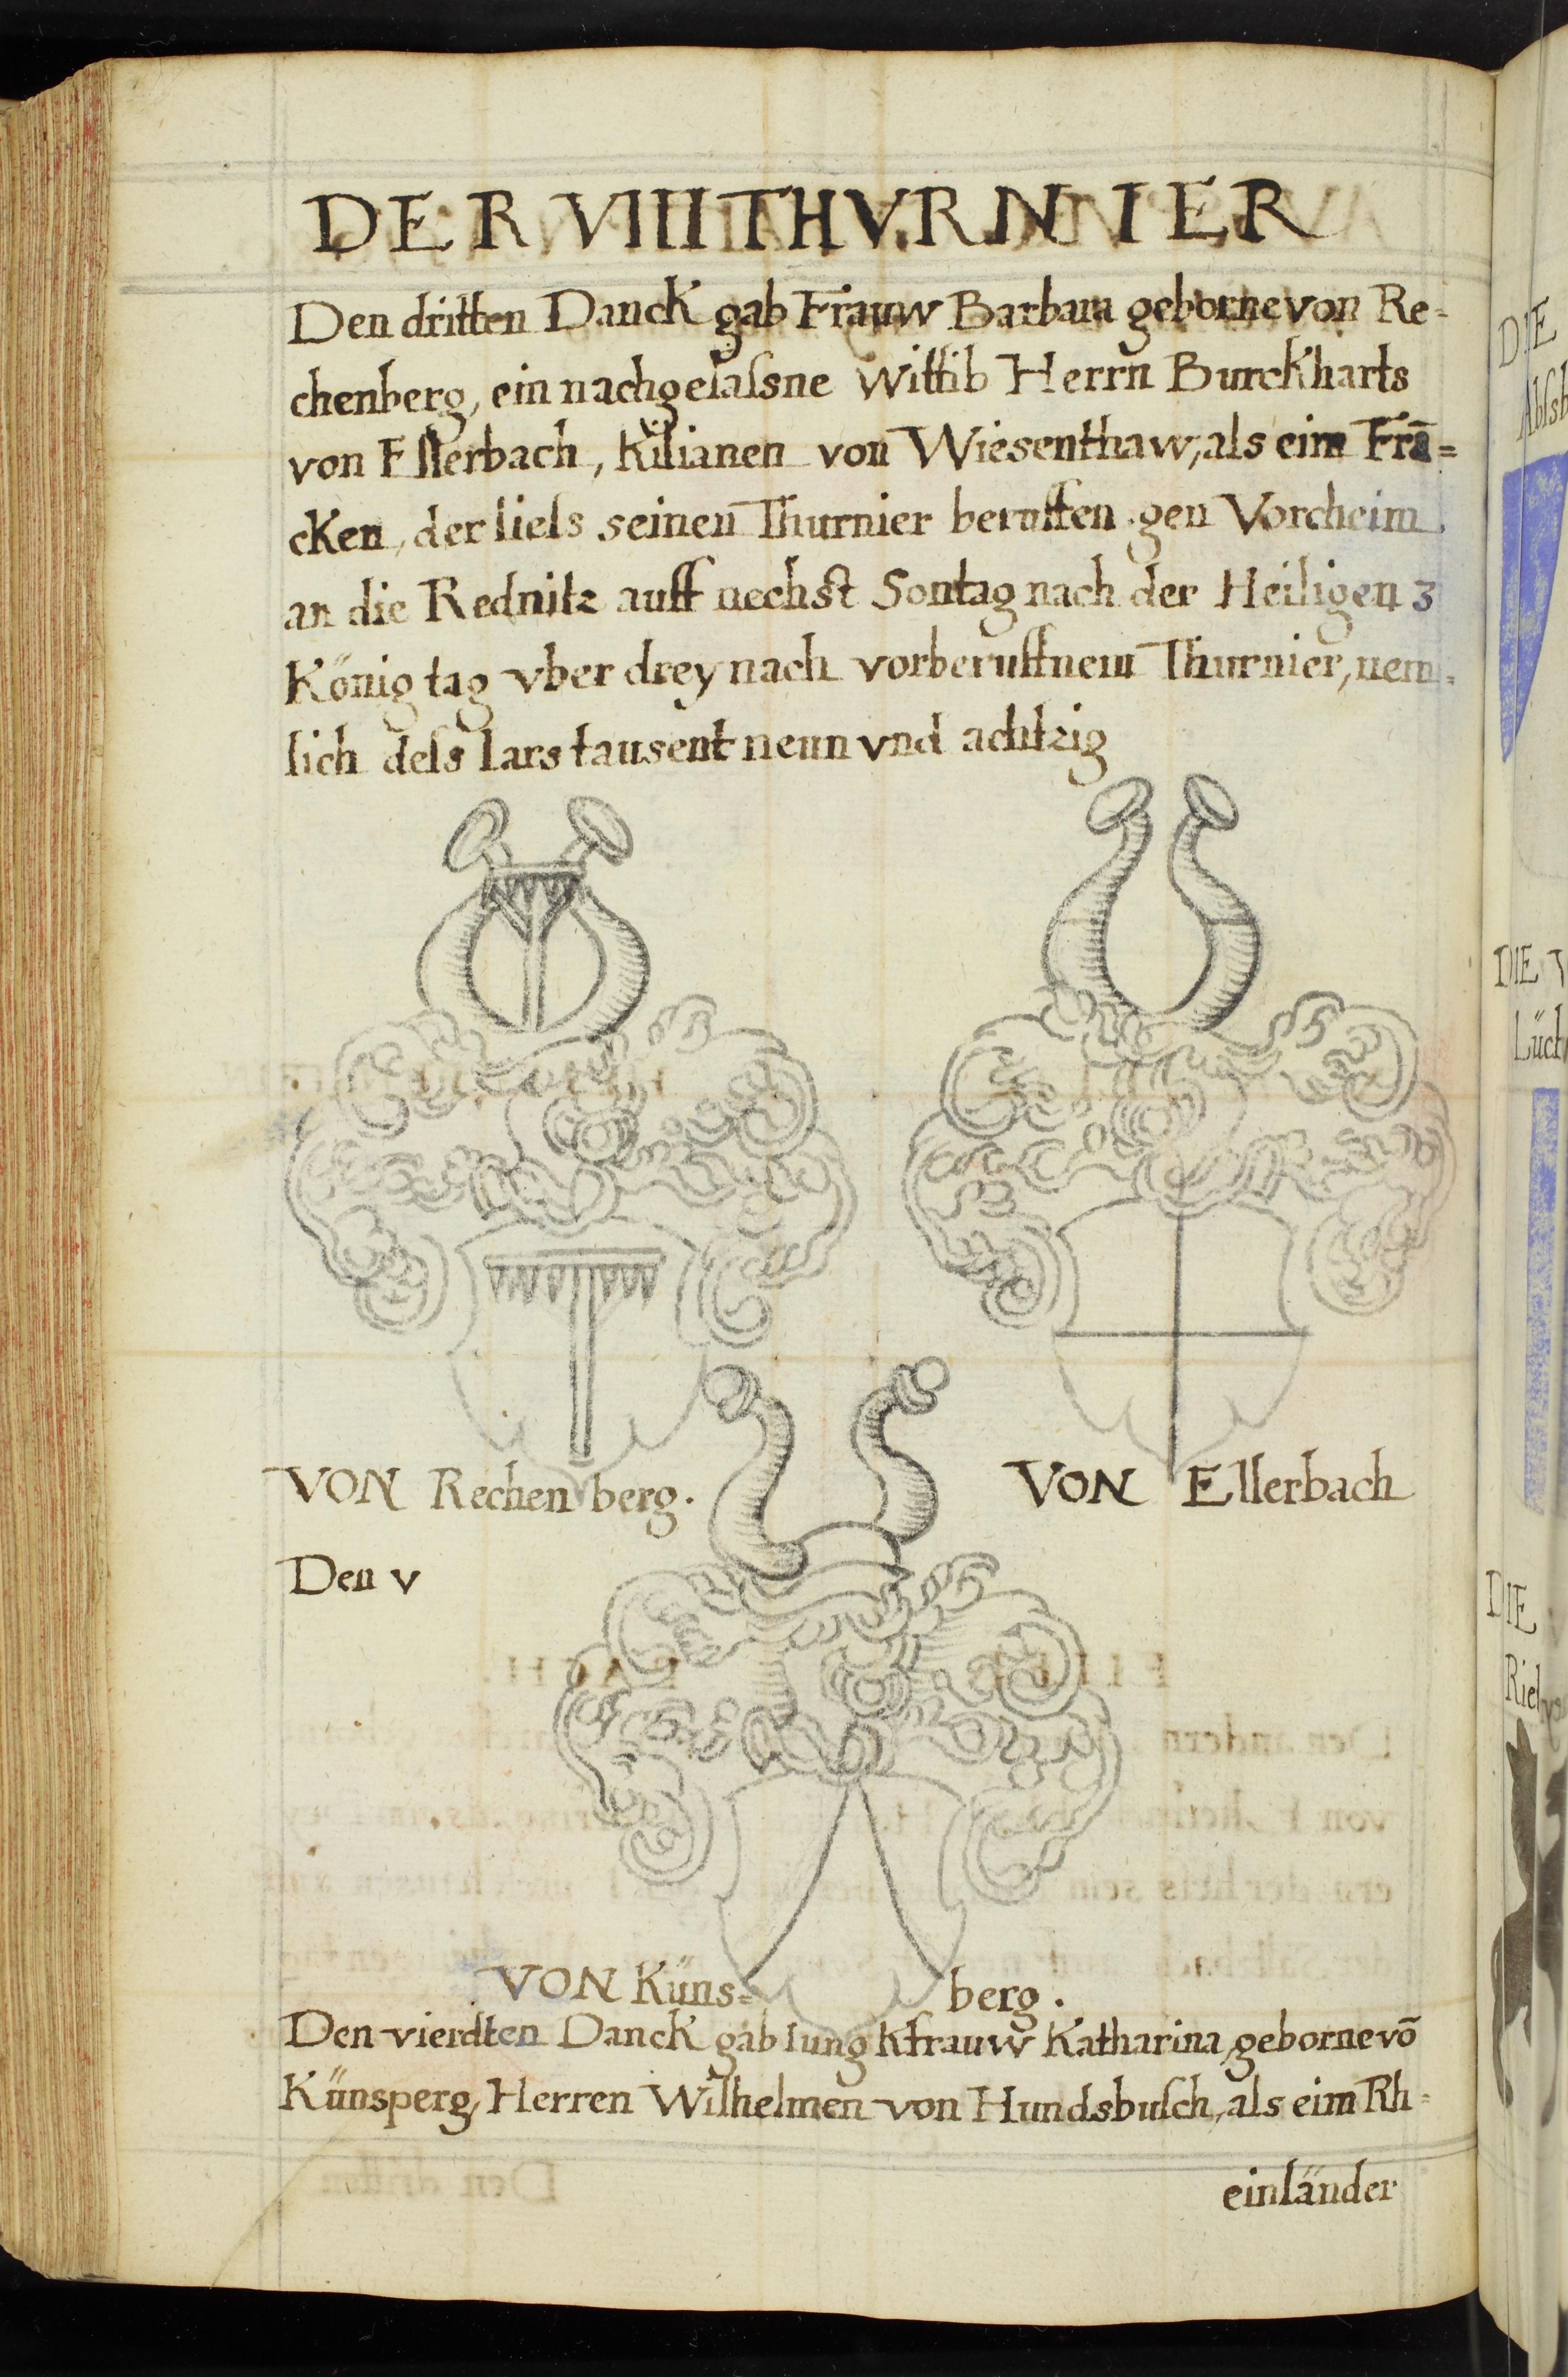 DER VIIII THVRNNIER
Den dritten Danck gab Frauw Barbara geborne von Re-
chenberg, ein nachgelaſsne Wittib Herrn Burckharts
von Ellerbach, Kilianen von Wiesenthaw, als eim Frã=
cken, der lieſs seinen Thurnier beruffen gen Vorcheim
an die Rednitz auff nechst Sontag nach der Heiligen 3
König tag vber drey nach vorberuffnem Thurnier, nem-
lich deſs Iars tausent neun vnd achtzig
VON Rechen berg.
VON Ellerbach
Den v
VON Küns= berg.
Den vierdten Danck gab Iungkfrauw Katharina, geborne võ
Künsperg, Herren Wilhelmen von Hundsbuſch, als eim Rh-
einländer
DIE
Absb
DIE
Lüch
DIE
Ried